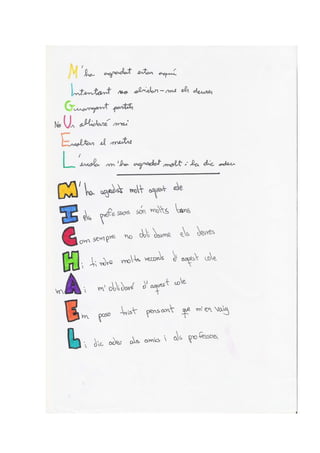 M'ha agradat estar aquí
Intentant no oblidar-me els deures
Guanyant partits
No Us oblidaré mai
Escoltar el mestre
L'escola m'ha agradat molt i ha dic adeu
M'ha agradat molt aquest cole
I els professors són molts bons
Com sempre no oblidarme els deures
Hi tindre molts records d'aquest cole
mAi m'oblidaré d'aquest cole
Em poso trist pensant que m'en vaig
Li dic adeu als amics i als professors